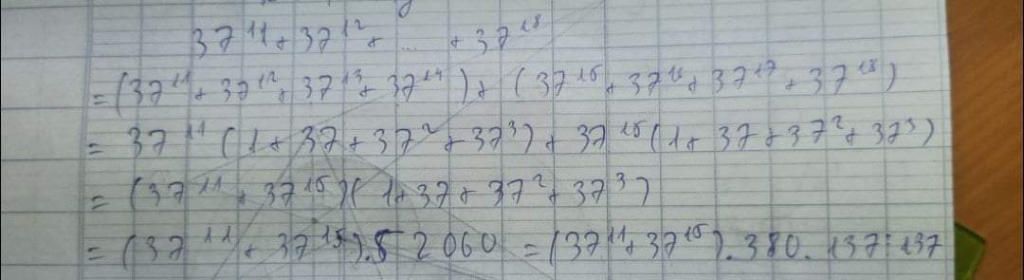 37¹¹ + 37¹² + ... + 37¹⁸
= (37¹¹ + 37¹² + 37¹³ + 37¹⁴) + (37¹⁵ + 37¹⁶ + 37¹⁷ + 37¹⁸)
= 37¹¹ (1 + 37 + 37² + 37³) + 37¹⁵ (1 + 37 + 37² + 37³)
= (37¹¹ + 37¹⁵)(1 + 37 + 37² + 37³)
= (37¹¹ + 37¹⁵).52060 = (37¹¹ + 37¹⁵).380.137⋮137